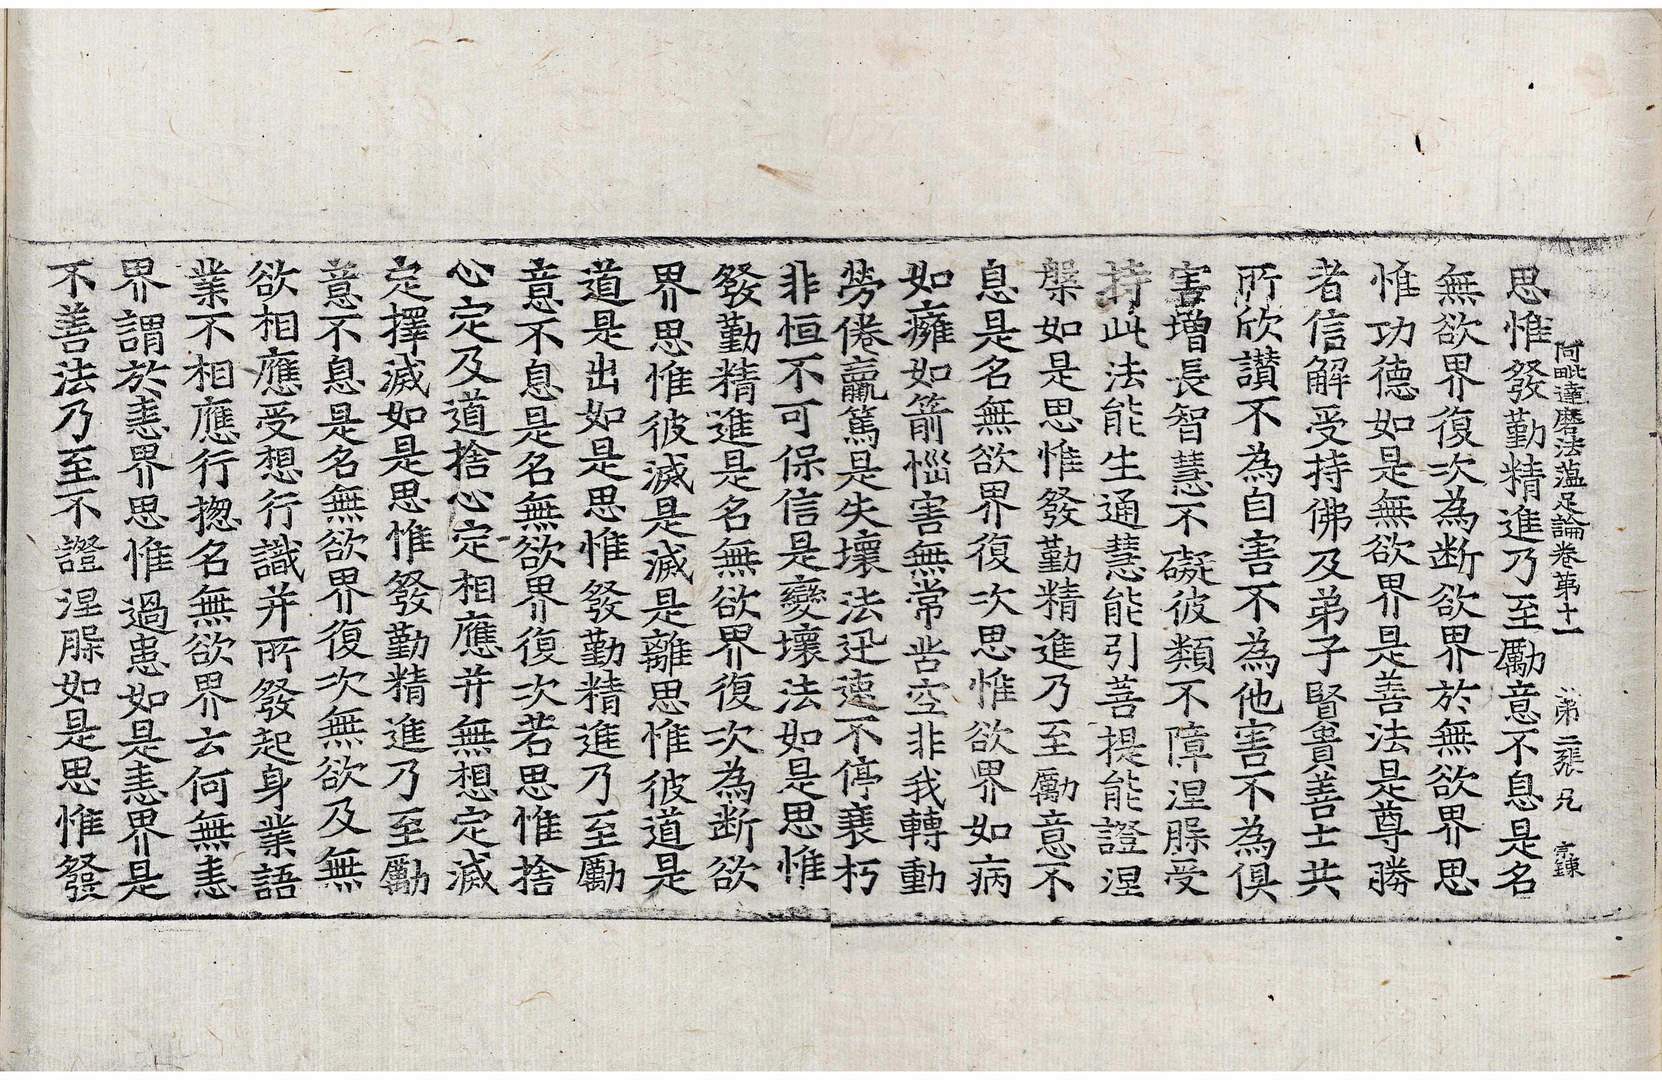 思惟發勤精進乃至勵意不息是名
阿毗達磨法蕴足論卷第十一 第二張 兄
無欲界復次為断欲界於無欲界思
惟功德如是無欲界是善法是尊勝
者信解受持佛及弟子賢貴善士共
所欣讃不為自害不為他害不為俱
害增長智慧不礙彼類不障涅槃受
持此法能生通慧能引菩提能證涅
槃如是思惟發勤精進乃至勵意不
息是名無欲界復次思惟欲界如病
如癰如箭惱害無常苦空非我轉動
勞倦羸篤是失壞法迅速不停衰朽
非恒不可保信是變壞法如是思惟
發勤精進是名無欲界復次為断欲
界思惟彼滅是滅是離思惟彼道是
道是出如是思惟發勤精進乃至勵
意不息是名無欲界復次若思惟捨
心定及道捨心定相應并無想定滅
定擇滅如是思惟發勤精進乃至勵
意不息是名無欲界復次無欲及無
欲相應受想行識并所發起身業語
業不相應行捴名無欲界云何無恚
界謂於恚界思惟過患如是恚界是
不善法乃至不證涅槃如是思惟發